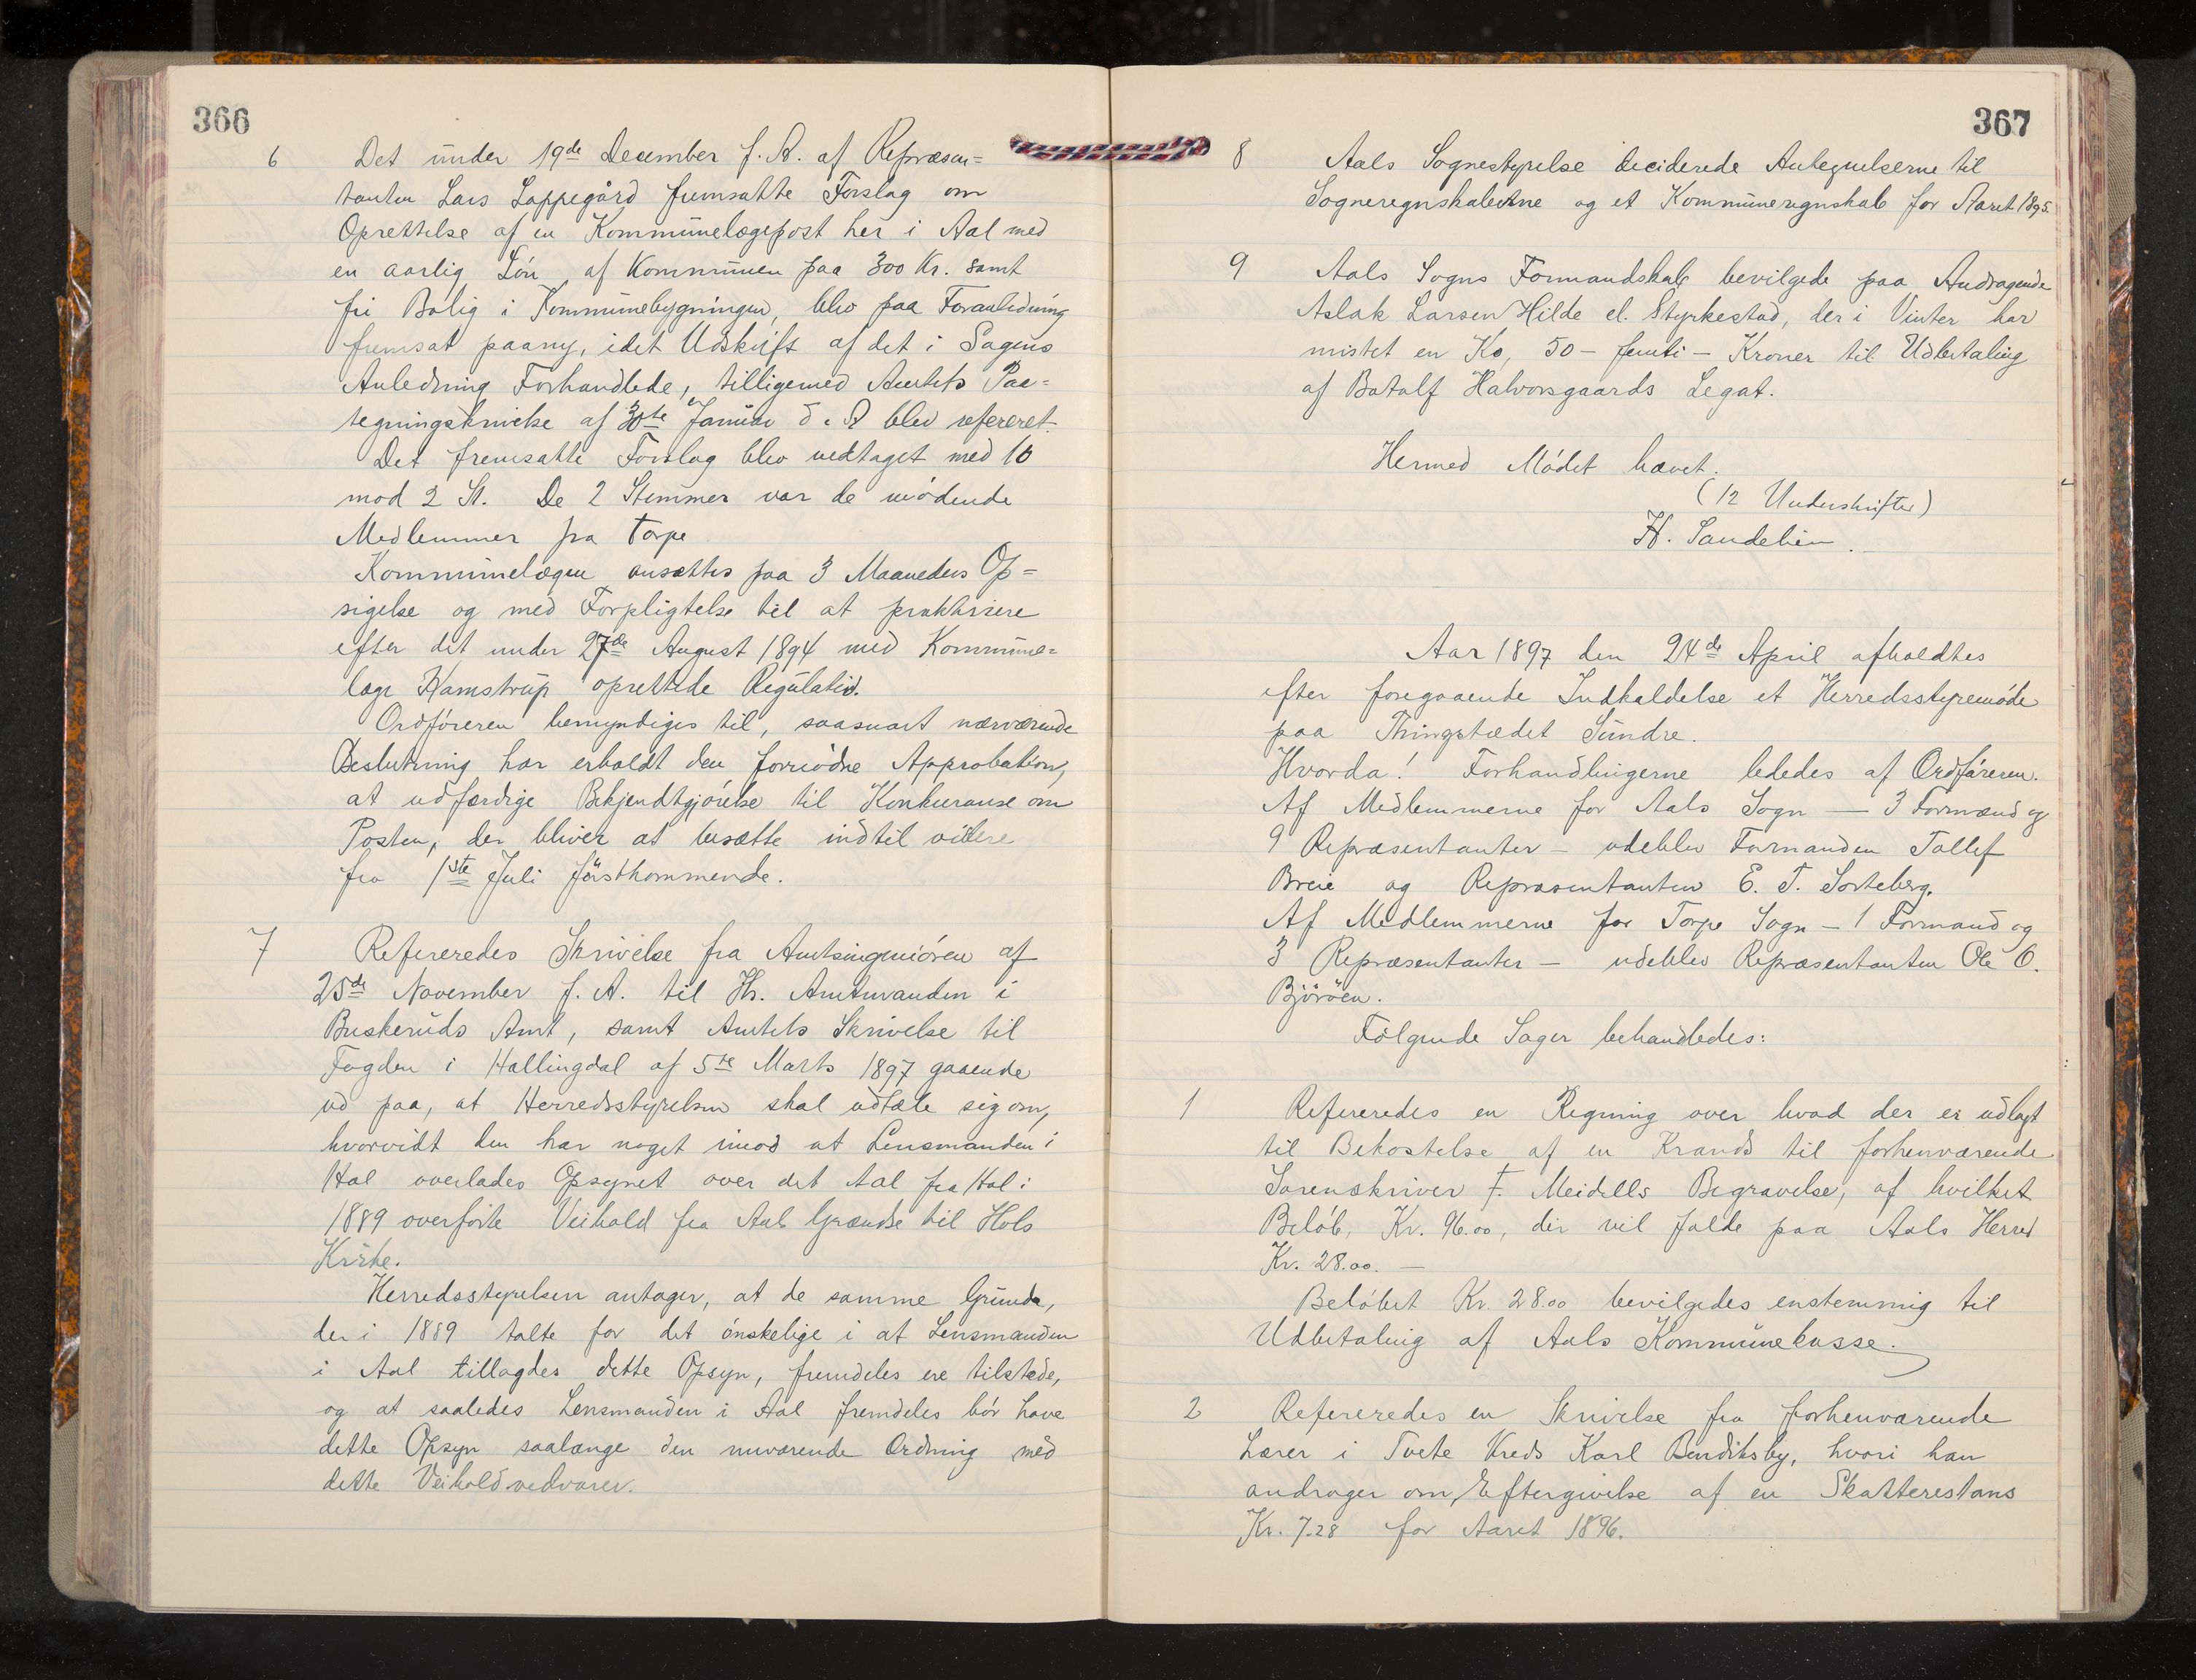 366
6 Det under 19de December f. A. af Repræsen=
tanten Lars Lappegård fremsatte Forslag om
Oprettelse af en Kommunelægepost her i Aal med
en aarlig Løn af Kommunen paa 300 Kr. samt
fri Bolig i Kommunebygningen, blev paa Foranledning
fremsat paany, idet Udskrift af det i Sagens
Anledning Forhandlede, tilligemed Amtets Paa=
tegningsskrivelse af 30te Januar d. A blev refereret.
Det fremsatte Forslag blev vedtaget med 10
mod 2 St. De 2 Stemmer var de mødende
Medlemmer fra Torpe
Kommunelægen ansættes paa 3 Maaneders Op=
sigelse og med Forpligtelse til at praktisere
efter det under 27de August 1894 med Kommune=
læge Hamstrup oprettede Regulativ.
Ordføreren bemyndiges til, saasnart nærværende
Beslutning har erholdt den fornødne Approbation,
at udfærdige Bekjendtgjørelse til Konkuranse om
Posten, der bliver at besætte indtil videre
fra 1ste Juli førstkommende.
7 Refereredes Skrivelse fra Amtsingeniøren af
25de November f. A. til Hr. Amtmanden i
Buskeruds Amt, samt Amtets Skrivelse til
Fogden i Hallingdal af 5te Marts 1897 gaaende
ud paa, at Herredsstyrelsen skal udtale sig om,
hvorvidt den har noget imod at Lensmanden i
Hol overlades Opsynet over det Aal fra Hol i
1889 overførte Veihold fra Aals Grændse til Hols
Kirke.
Herredsstyrelsen antager, at de samme Grunde,
der i 1889 talte for det ønskelige i at Lensmanden
i Aal tillagdes dette Opsyn, fremdeles ere tilstede,
og at saaledes Lensmanden i Aal fremdeles bør have
dette Opsyn saalænge den nuværende Ordning med
dette Veihold vedvarer.
367
8 Aals Sognestyrelse deciderede Antegnelserne til
Sogneregnskaberne og et Kommuneregnskab for Aaret 1895.
9 Aals Sogns Formandskab bevilgede paa Andragende
Aslak Larsen Hilde el. Styrkestad, der i Vinter har
mistet en Ko, 50 - femti - Kroner til Udbetaling
af Botolf Halvorsgaards Legat.
Hermed Mødet hævet.
(12 Underskrifter)
H. Sandelien.
Aar 1897 den 24de April afholdtes
efter foregaaende Indkaldelse et Herredsstyremøde
paa Thingstedet Sundre.
Hvorda! Forhandlingerne lededes af Ordføreren.
Af Medlemmerne for Aals Sogn — 3 Formænd og
9 Repræsentanter — udeblev Formanden Tollef
Breie og Repræsentanten E. T. Sorteberg.
Af Medlemmerne for Torpe Sogn — 1 Formand og
3 Repræsentanter — udeblev Repræsentanten Ole O.
Bjøröen.
Følgende Sager behandledes:
1 Refereredes en Regning over hvad der er udlagt
til Bekostelse af en Krands til forhenværende
Sorenskriver F. Meidells Begravelse, af hvilket
Beløb, Kr. 96.00, der vil falde paa Aals Herred
Kr. 28.00. —
Beløbet Kr. 28.00 bevilgedes enstemmig til
Udbetaling af Aals Kommunekasse.
2 Refereredes en Skrivelse fra forhenværende
Lærer i Tvete Kreds Karl Bendiksby, hvori han
andrager om Eftergivelse af en Skatterestans
Kr. 7.28 for Aaret 1896.